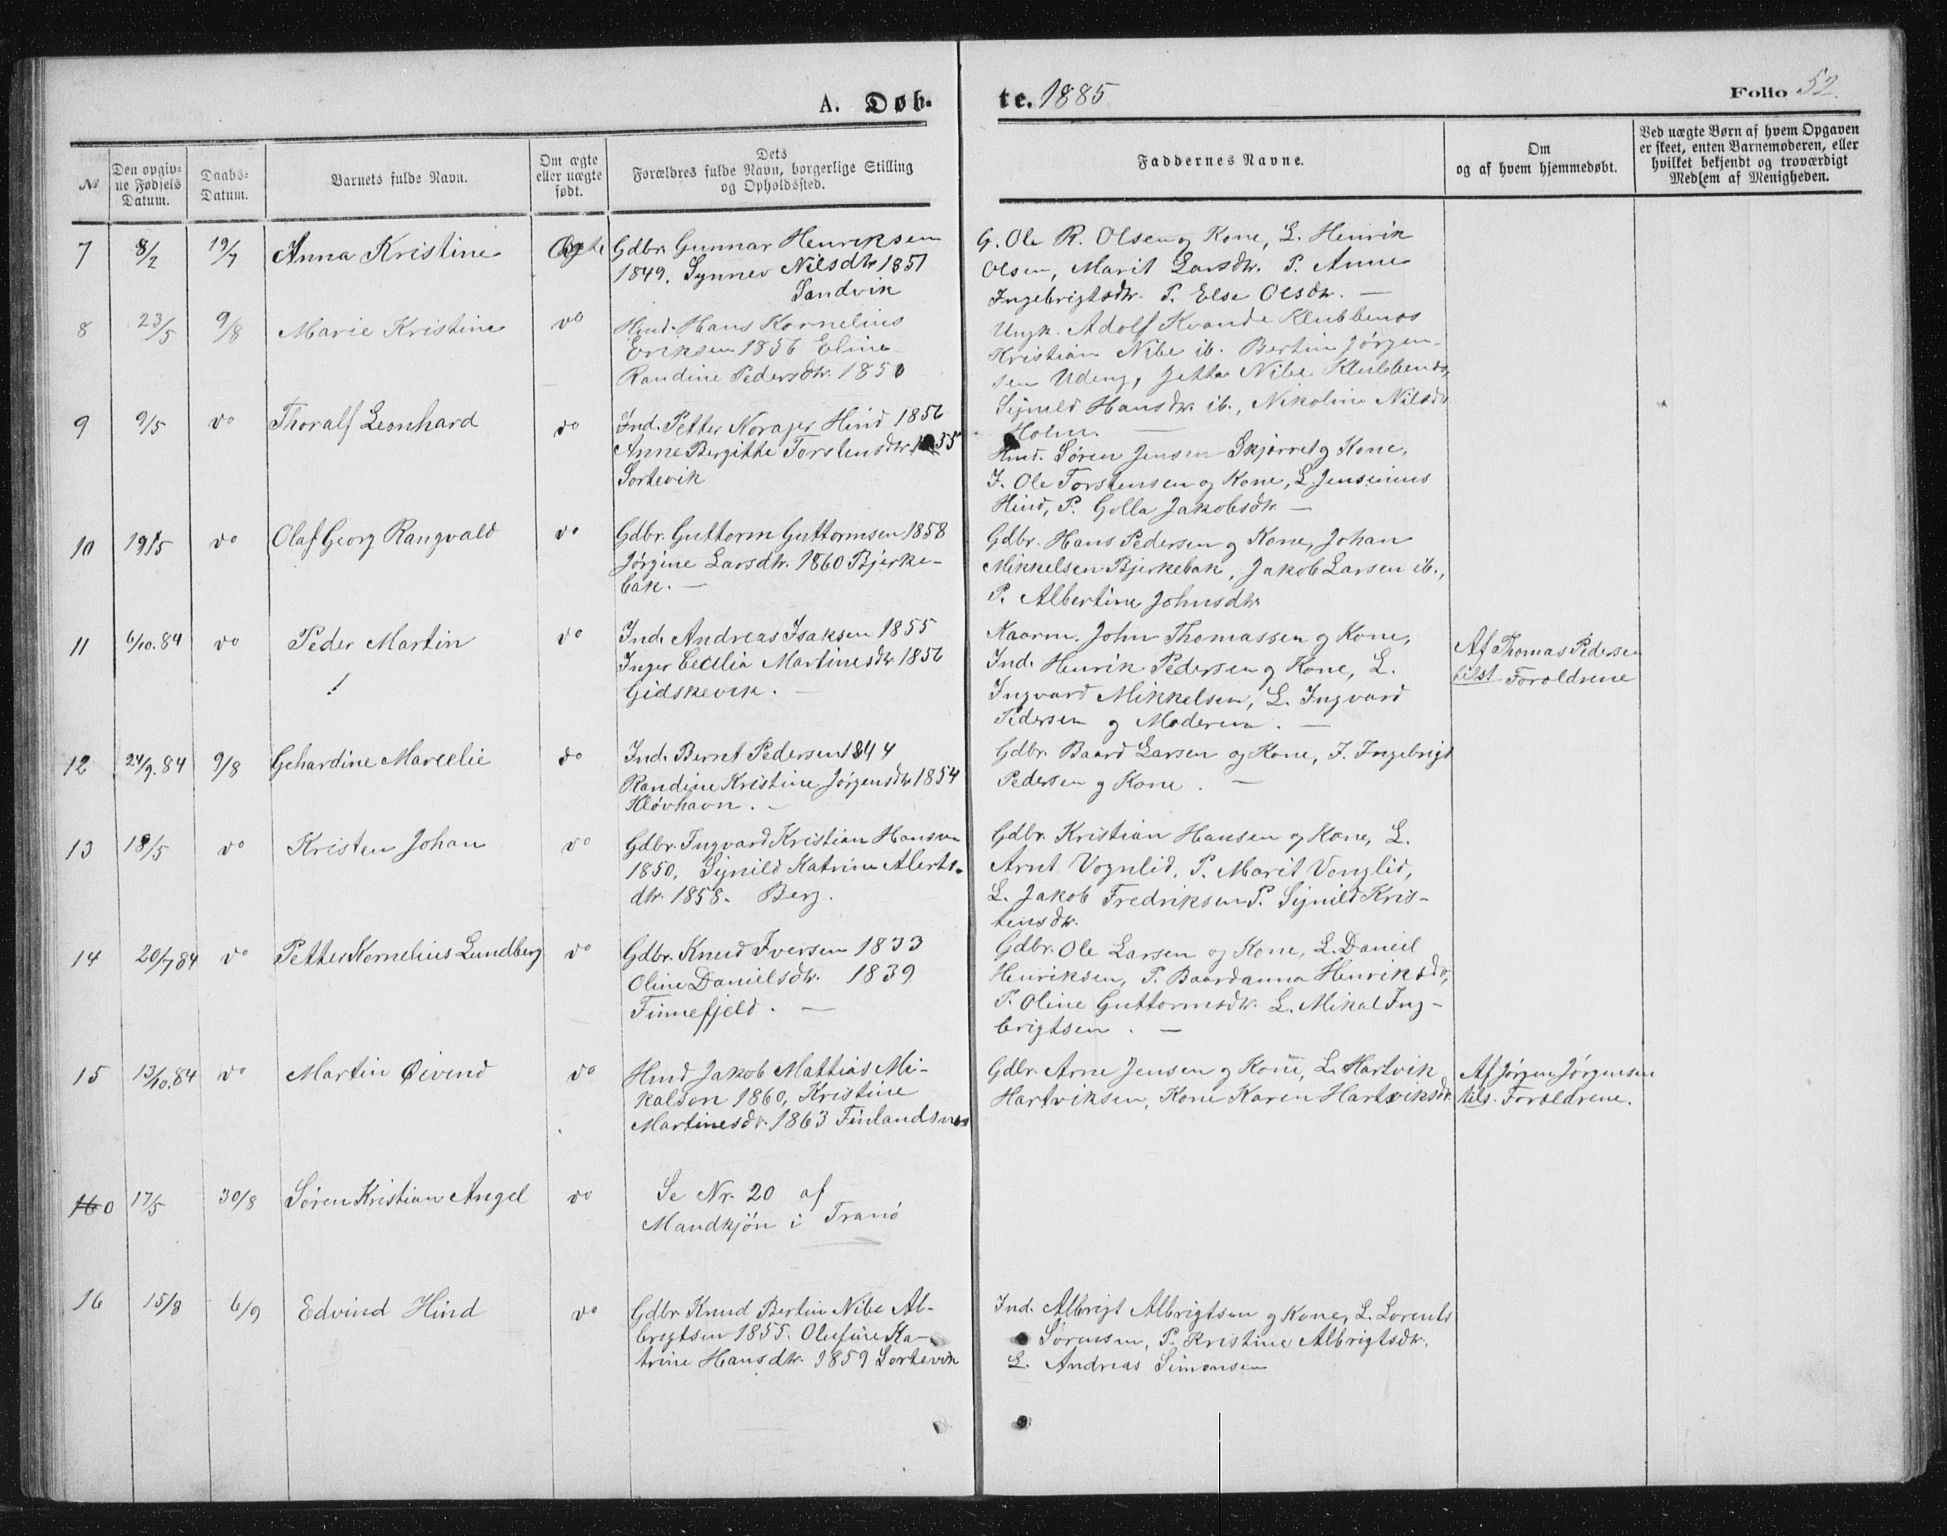 A. Døbte. 1885
Folio 52.
№
Den opgivne Fødsels Datum.
Daabs-Datum.
Barnets fulde Navn.
Om ægte eller uægte født.
Dets Forældres fulde Navn, borgerlige Stilling og Opholdssted.
Faddernes Navne.
Om og af hvem hjemmedøbt.
Ved uægte Børn af hvem Opgaven er skeet, enten Barnemoderen, eller hvilket bekjendt og troværdigt Medlem af Menigheden.
7 8/2 19/7 Anna Kristine Ægte
Gdbr. Gunnar Henriksen
1849, Synnev Nilsdtr 1851
Sandvik
G. Ole R. Olsen og Kone, L. Henrik
Olsen, Marit Larsdtr. P. Anne
Ingebrigtsdtr. P. Else Olsdtr. —
8 23/5 9/8 Marie Kristine do
Hmd. Hans Kornelius
Eriksen 1856 Eline
Randine Pedersdtr. 1850
Ungk. Adolf Kvande Klubbenes
Kristian Nibe ib. Bertin Jørgen-
sen Udeng, Jetta Nibe Klubbenes,
Signild Hansdtr. ib., Nikoline Nilsdtr
Holm. —
9 9/5 do Thoralf Leonhard do
Ind. Petter Norager Hind 1856
Anne Bergitte Torstensdtr 1855
Sortevik
Hmd. Søren Jensen Skjørret og Kone,
I. Ole Torstensen og Kone, L. Jensenius
Hind, P. Golla Jakobsdtr —
10 19/5 do Olaf Georg Rangvald do
Gdbr. Guttorm Guttormsen 1858
Jørgine Larsdtr. 1860 Bjerke-
bak. —
Gdbr. Hans Pedersen og Kone, Johan
Mikkelsen Bjerkebak, Jakob Larsen ib.,
P. Albertine Johnsdtr
11 6/10.84 do Peder Martin do
Ind. Andreas Isaksen 1855
Inger Cecilia Martinesdtr 1856
Gidskevik. —
Kaarm. John Thomassen og Kone,
Ind. Henrik Pedersen og Kone, L.
Ingvard Mikkelsen, L. Ingvard
Pedersen og Moderen. —
Af Thomas Pedersen
tilst. Foroldrene
12 24/9.84 9/8 Gehardine Marcelie do
Ind. Bernt Pedersen 1844
Randine Kristine Jørgensdtr 1854
Kløvhavn. —
Gdbr. Baard Larsen og Kone, I. Ingebrigt
Pedersen og Kone. —
13 18/5 do Kristen Johan do
Gdbr. Ingvard Kristian Hansen
1850, Signild Katrine Alberts-
dtr. 1858. Berg.
Gdbr. Kristian Hansen og Kone, L.
Arnt Vognlid, P. Marit Vonglid,
L. Jakob Fredriksen P. Signild Kris-
tensdtr.
14 20/7 84 do Petter Kornelius Lundberg do
Gdbr. Knud Iversen 1833
Oline Danielsdtr. 1839
Finnefjeld. —
Gdbr. Ole Larsen og Kone, L. Daniel
Henriksen, P. Baardanna Henriksdtr,
P. Oline Guttormsdtr. L. Mikal Ing-
brigtsen. —
15 13/10.84 do Martin Øivind do
Hmd Jakob Mattias Mi-
kalson 1860, Kristine
Martinesdtr. 1863 Finlandsnes
Gdbr. Arne Jensen og Kone, L. Hartvik
Hartviksen, Kone Karen Hartviksdtr.
Af Jørgen Jørgensen
tils. Forældrene.
160 17/5 30/8 Søren Kristian Angel do
Se Nr. 20 af
Mandkjøn i Tranø
16 15/8 6/9 Edvind Hind do
Gdbr. Knud Bertin Nibe Al-
brigtsen 1855. Olufine Ka-
trine Hansdtr. 1859 Sortevik
Ind. Albrigt Albrigtsen og Kone, L. Lorents
Sørensen, P. Kristine Albrigtsdtr.
L. Andreas Simonsen